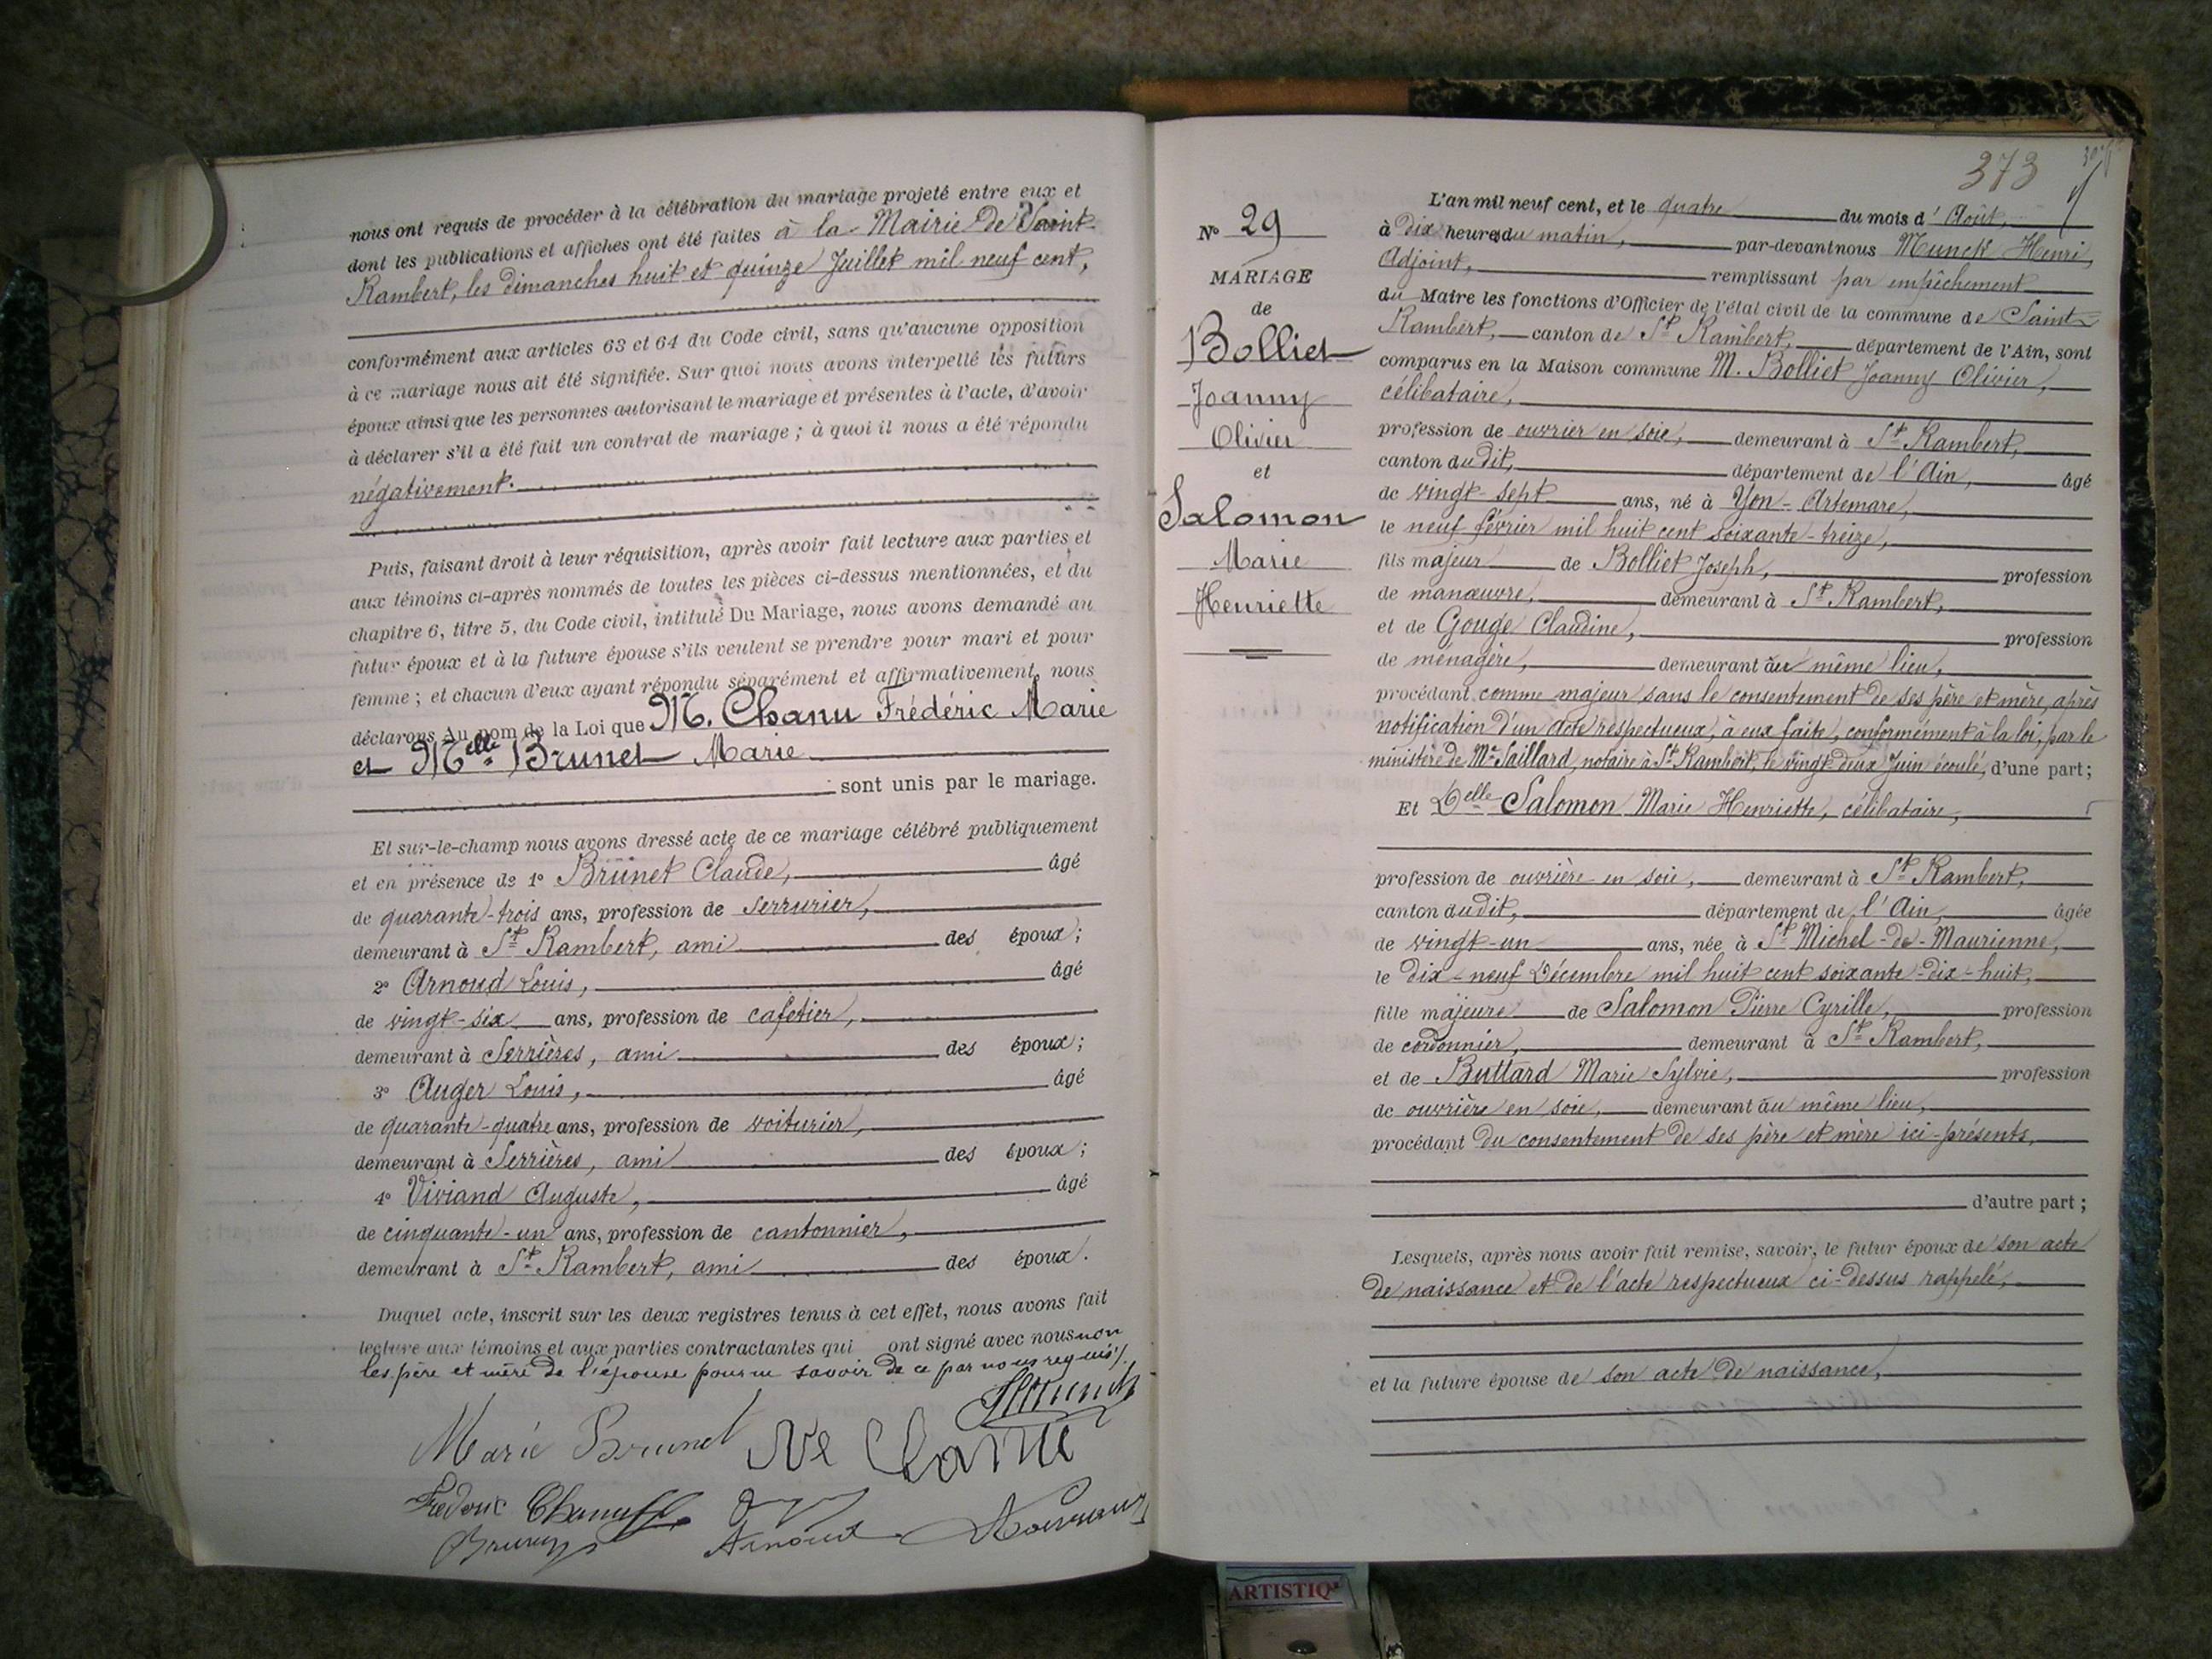 nous ont requis de procéder à la célébration du mariage projeté entre eux et
dont les publications et affiches ont été faites à la Mairie de Saint-
Rambert, les dimanches huit et quinze Juillet mil neuf cent,
conformément aux articles 63 et 64 du Code civil, sans qu'aucune opposition
à ce mariage nous ait été signifiée. Sur quoi nous avons interpellé les futurs
époux ainsi que les personnes autorisant le mariage et présentes à l'acte, d'avoir
à déclarer s'il a été fait un contrat de mariage ; à quoi il nous a été répondu
négativement.
Puis, faisant droit à leur réquisition, après avoir fait lecture aux parties et
aux témoins ci-après nommés de toutes les pièces ci-dessus mentionnées, et du
chapitre 6, titre 5, du Code civil, intitulé Du Mariage, nous avons demandé au
futur époux et à la future épouse s'ils veulent se prendre pour mari et pour
femme ; et chacun d'eux ayant répondu séparément et affirmativement, nous
déclarons Au nom de la Loi que M. Chanu Frédéric Marie
et Melle Brunet Marie
sont unis par le mariage.
Et sur-le-champ nous avons dressé acte de ce mariage célébré publiquement
et en présence de 1º Brunet Claude, âgé
de quarante-trois ans, profession de serrurier,
demeurant à St Rambert, ami des époux ;
2º Arnoud Louis, âgé
de vingt-six ans, profession de cafetier,
demeurant à Serrières, ami des époux ;
3º Auger Louis, âgé
de quarante-quatre ans, profession de voiturier,
demeurant à Serrières, ami des époux ;
4º Viviand Auguste, âgé
de cinquante-un ans, profession de cantonnier,
demeurant à St Rambert, ami des époux.
Duquel acte, inscrit sur les deux registres tenus à cet effet, nous avons fait
lecture aux témoins et aux parties contractantes qui ont signé avec nous non
les père et mère de l'épouse pour ne savoir de ce par nous requis.
HMunck
Marie Brunet Ve Chanu
Frédéric Chanu
Brunet Arnoud
373
Nº 29
MARIAGE
de
Bolliet
Joanny
Olivier
et
Salomon
Marie
Henriette
L'an mil neuf cent, et le quatre du mois d'Août,
à dix heures du matin, par-devant nous Munck Henri,
Adjoint, remplissant par empêchement
du Maire les fonctions d'Officier de l'état civil de la commune de Saint-
Rambert, canton de St Rambert, département de l'Ain, sont
comparus en la Maison commune M. Bolliet Joanny Olivier,
célibataire,
profession de ouvrier en soie, demeurant à St Rambert,
canton du dit, département de l'Ain, âgé
de vingt-sept ans, né à Yon-Artemare,
le neuf février mil huit cent soixante-treize,
fils majeur de Bolliet Joseph, profession
de manœuvre, demeurant à St Rambert,
et de Gouge Claudine, profession
de ménagère, demeurant au même lieu,
procédant comme majeur sans le consentement de ses père et mère, après
notification d'un acte respectueux, à eux faite, conformément à la loi, par le
ministère de Me Saillard, notaire à St Rambert, le vingt-deux Juin écoulé, d'une part ;
Et Delle Salomon Marie Henriette, célibataire,
profession de ouvrière en soie, demeurant à St Rambert,
canton du dit, département de l'Ain, âgée
de vingt-un ans, née à St Michel-de-Maurienne,
le dix-neuf Décembre mil huit cent soixante-dix-huit,
fille majeure de Salomon Pierre Cyrille, profession
de cordonnier, demeurant à St Rambert,
et de Buttard Marie Sylvie, profession
de ouvrière en soie, demeurant au même lieu,
procédant du consentement de ses père et mère ici-présents,
d'autre part ;
Lesquels, après nous avoir fait remise, savoir, le futur époux de son acte
de naissance et de l'acte respectueux ci-dessus rappelé,
et la future épouse de son acte de naissance,
ARTISTIQ